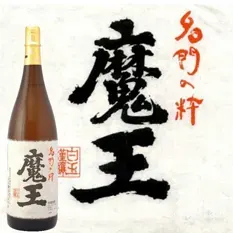 名門の粋
魔王
白玉醸造
名門の粋
魔王